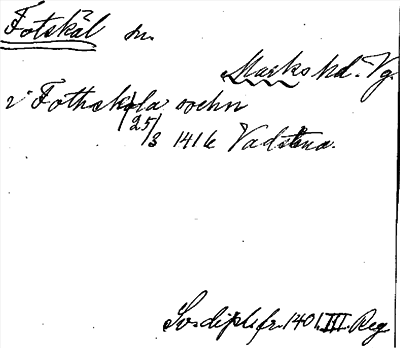 Fotskäl sn.
Marks hd. Vg.
i Fothskla sochn
25/3 1416 Vadstena.
Sv. dipl. fr. 1401. III. Reg